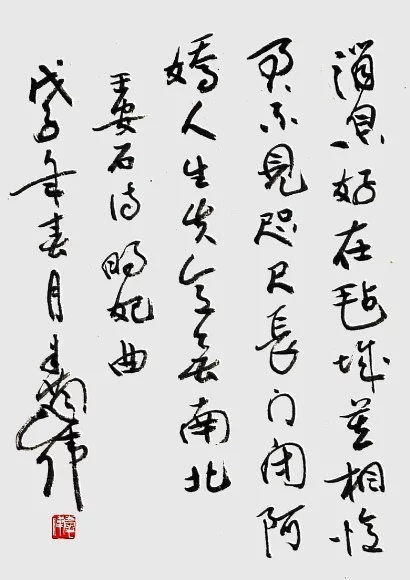 消息好在毡城莫相憶
君不見咫尺長门闭阿
嬌人生失意無南北
王安石诗明妃曲
戊子年春月